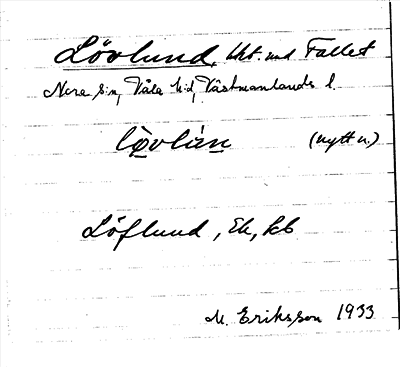 Lövlund, lht. und Fallet
Nora s:n, Våla h:d, Västmanlands l.
lövlùn (nytt n.)
Löflund, Ek, kb
M. Eriksson 1933